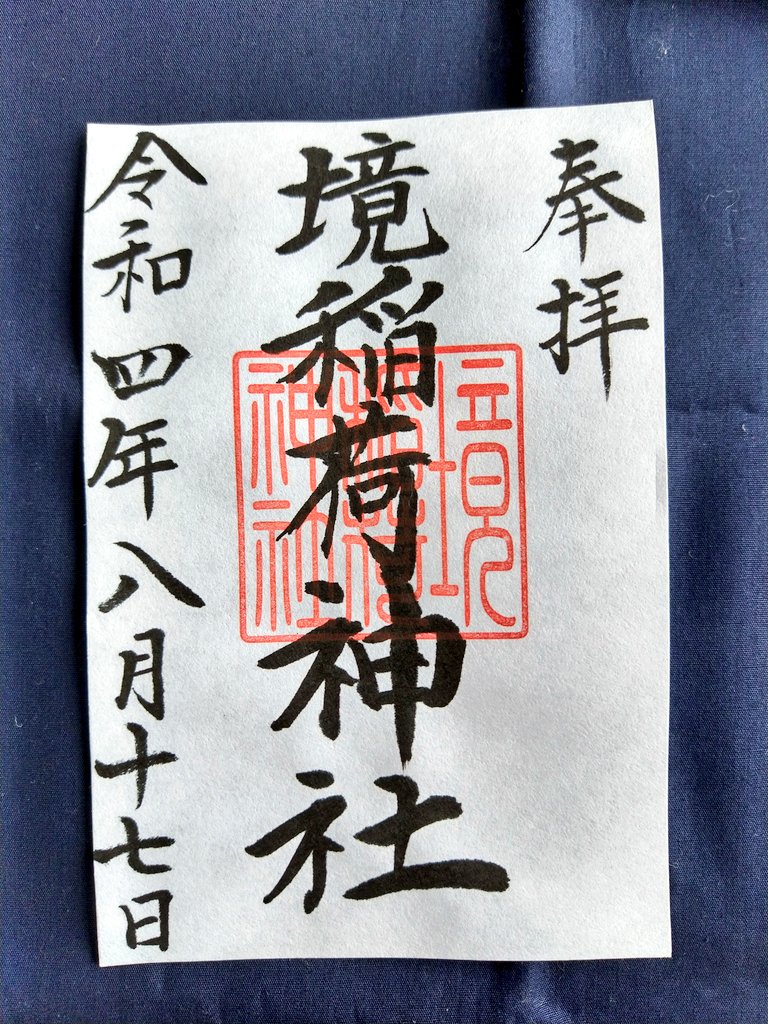 奉拝
境稲荷神社
境稲荷神社
令和四年八月十七日